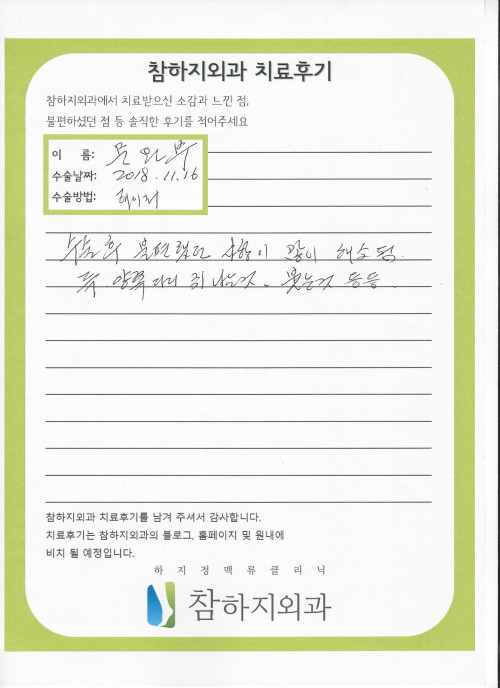 참하지외과 치료후기
참하지외과에서 치료받으신 소감과 느낀 점,
불편하셨던 점 등 솔직한 후기를 적어주세요
이 름:
수술날짜: 2018.11.16
수술방법: 레이저
수술 후 불편했던 사항이 많이 해소됨.
즉 양쪽다리 쥐 나는것. 붓는것 등등
참하지외과 치료후기를 남겨 주셔서 감사합니다.
치료후기는 참하지외과의 블로그, 홈페이지 및 원내에
비치 될 예정입니다.
하지정맥류클리닉
참하지외과